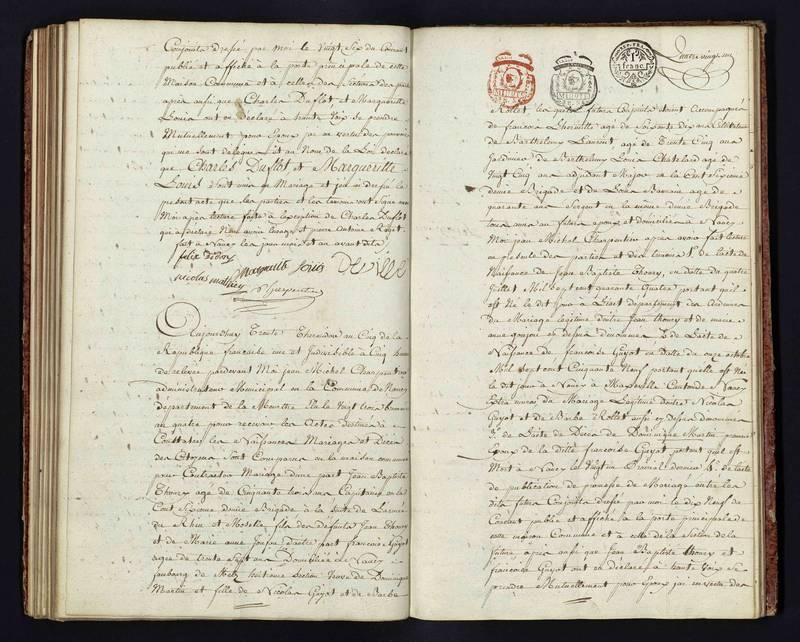 Conjoints dressé par moi le vingt Six du Courant
publié et affiché à la porte principale de cette
Maison Commune et à celle des Sections des
après aussi que Charles Duflot et Marguerite
Louis ont en déclaré à haute voix se prendre
Mutuellement pour Epoux jai en vertu des pouvoirs
qui me sont délégués et au Nom de la Loi déclaré
que Charles Duflot, et Marguerite
Louis sont unis en Mariage et jai dressé le
présent acte que les parties et les témoins ont signé avec
Moi après lecture faite à l'exception de Charles Duflot
qui a déclaré
fait à Nancy les jour mois et an avant dits
felix didon
nicolas mathieu Marguerite Louis Deville
Charpentier
Aujourdhuy Trente Thermidor au Cinq de la
République française une et Indivisible à Cinq heures
de relevée pardevant Moi Jean Michel Charpentier
administrateur Municipal en la Commune de Nancy
département de la Meurthe Elu le vingt trois brumaire
an quatre pour recevoir les Actes destinés à
Constater les Naissances Mariages et Décès
des Citoyens Sont Comparus en la maison commune
pour Contracter Mariage dune part Jean Baptiste
Thoury agé de Cinquante trois ans Capitaine en la
Cent Sixieme demie Brigade à la suite de Larmée
du Rhin et Moselle fils des défunts Jean Thoury
et de Marie anne dautre part francoise Guyot
agée de trente Sept ans Domiciliée à Nancy
faubourg de Metz huitieme Section Veuve de Dominique
Martin et fille de Nicolas Guyot et de Barbe
1 franc
Quatre vingt un
Rollet les quels futurs Conjoints étoient accompagnés
de francois Lhonville agé de Soixante dix ans
de Barthelemy Laurent agé de Trente Cinq ans
Jardinier de Barthelemy Louis Chatelard agé de
Vingt Cinq ans adjudant Major en la Cent Sixieme
demie Brigade et de Louis Barrain agé de
quarante ans Sergent en la même demie Brigade
tous amis au futur epoux et domiciliés à Nancy
Moi Jean Michel Charpentier après avoir fait lecture
en présence des parties et des témoins 1° de l'acte de
Naissance de Jean Baptiste Thoury, en datte du quatre
juillet Mil Sept cent quarante Quatre portant qu'il
est Né le dit Jour à département des Ardennes
du Mariage légitime dentre Jean Thoury et de marie
anne ci dessus denommés 2° de Lacte de
Naissance de francoise Guyot en datte du onze octobre
Mil Sept cent Cinquante Neuf portant quelle est Née
le dit jour à Nancy à Maxeville Canton de Nancy
Extra muros du Mariage Légitime dentre Nicolas
Guyot et de Barbe Rollet aussi cy dessus denommés
3° de Lacte de Décès de Dominique Martin premier
Epoux de la ditte francoise Guyot portant quil est
Mort à Nancy le Vingt un Prairial dernier 4° de l'acte
de publication de promesse de Mariage entre les
dits futurs Conjoints dressé par moi le dix Neuf du
Courant publié et affiché à la porte principale de
cette maison Commune et à celle de la Section de la
future après aussi que Jean Baptiste Thoury et
francoise Guyot ont en déclaré à haute Voix se
prendre Mutuellement pour Epoux jai en vertu des